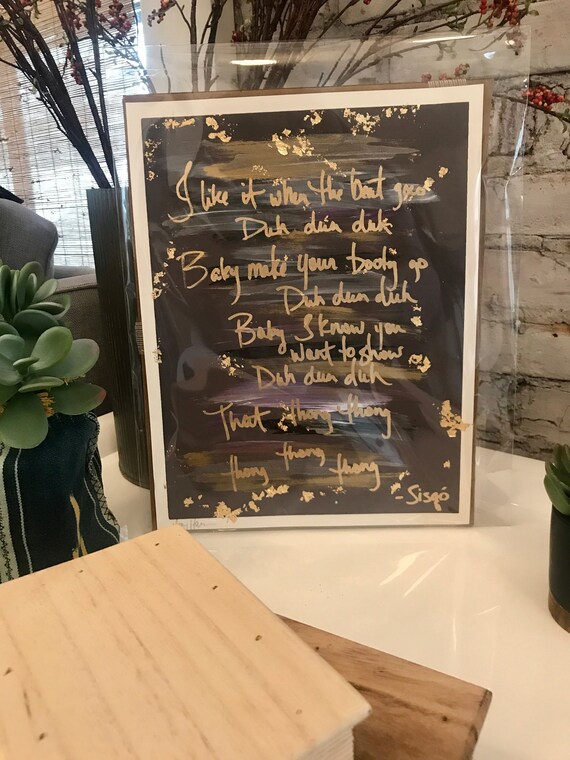 I like it when the beat goes
Duh dun duh
Baby make your booty go
Duh dun duh
Baby I know you
want to show
Duh dun duh
That thong thong
thong thong thong
- Sisqó